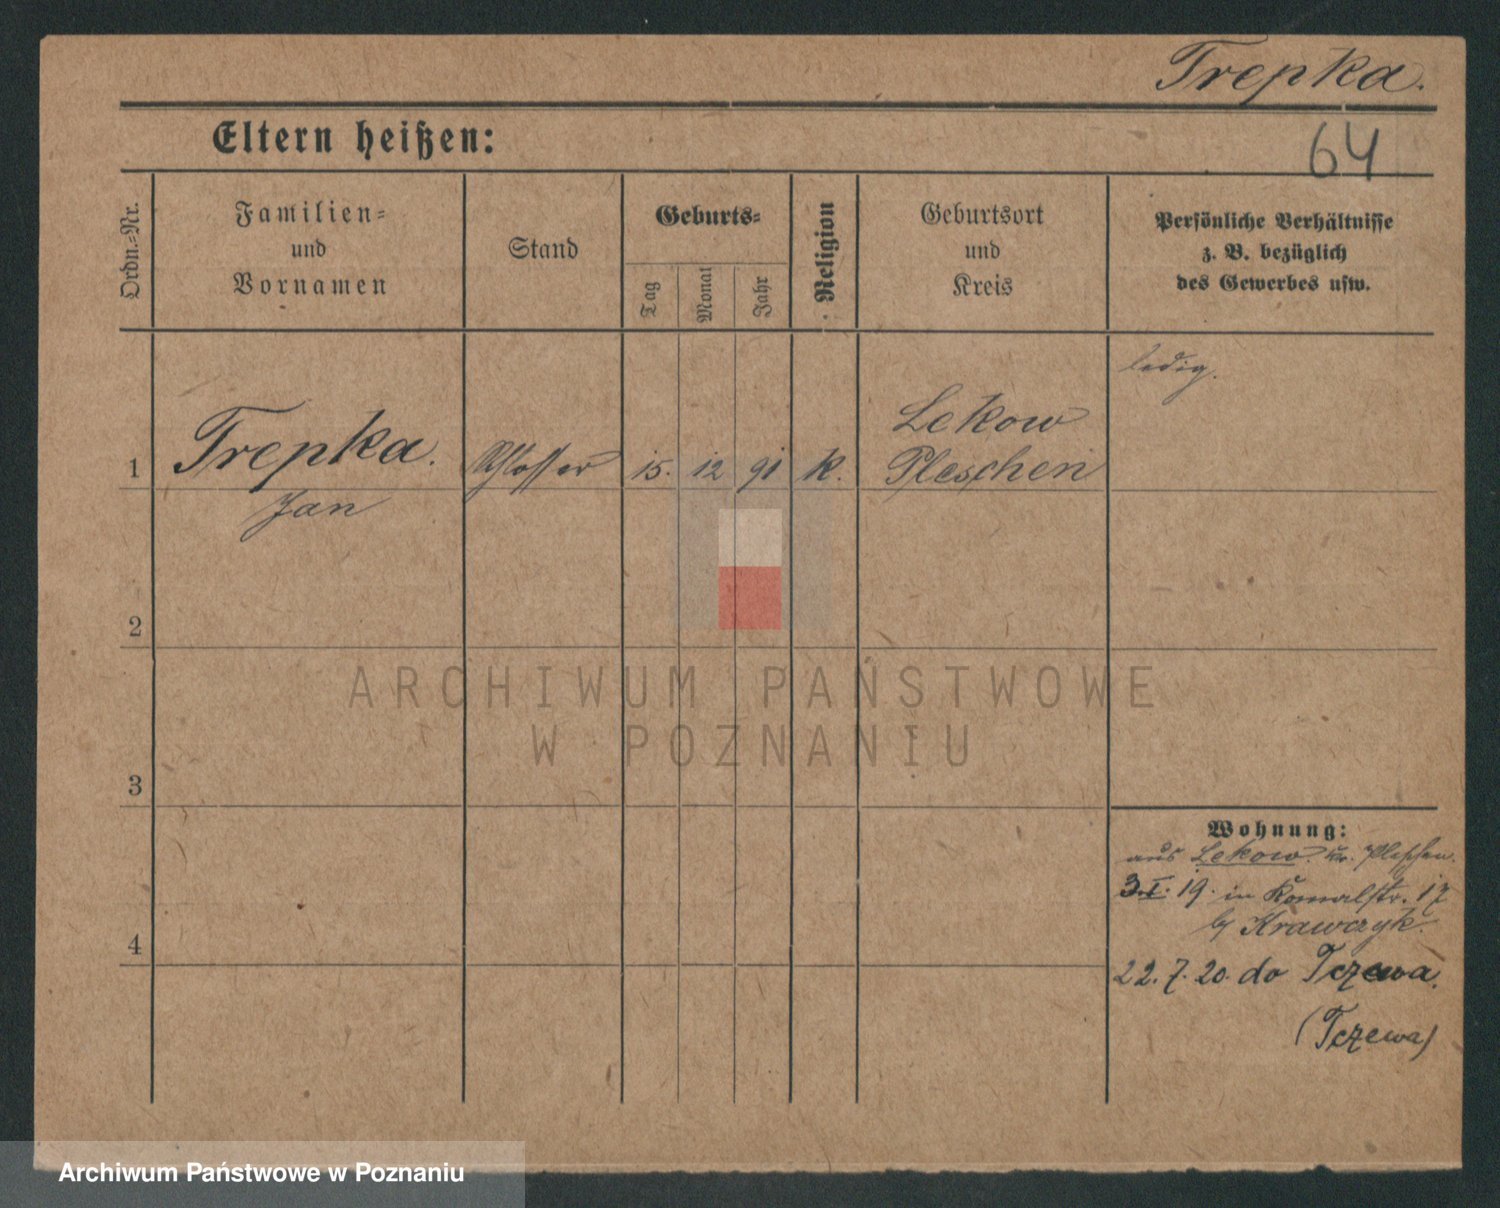 Trepka.
Eltern heißen:
64
Ordn.-Nr.
Familien-
und
Vornamen
Stand
Geburts-
Tag
Monat
Jahr
Religion
Geburtsort
und
Kreis
Persönliche Verhältnisse
z. B. bezüglich
des Gewerbes usw.
ledig.
1
Trepka.
Jan
Schlosser
15.
12
91
K.
Lekow
Pleschen
2
ARCHIWUM PAŃSTWOWE
W POZNANIU
3
Wohnung:
aus Lekow. Kr. Pleschen.
3.I.19. in 17
b/ Krawczyk.
4
22.7.20. do Tczewa.
(Tczewa)
Archiwum Państwowe w Poznaniu